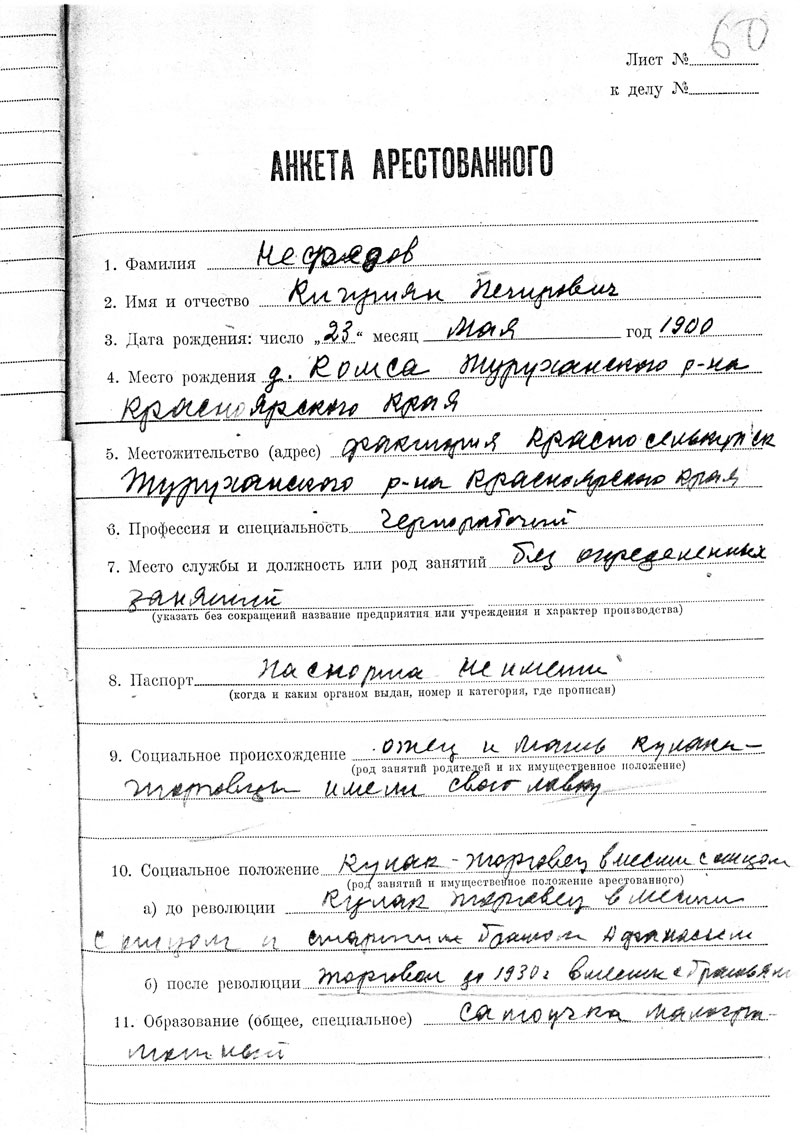 60
Лист №
к делу №
АНКЕТА АРЕСТОВАННОГО
1. Фамилия Нефядов
2. Имя и отчество Киприян Петрович
3. Дата рождения: число „23“ месяц Мая год 1900
4. Место рождения д. Комса Туруханского р-на
Красноярского края
5. Местожительство (адрес) фактория Красноселькупск
Туруханского р-на Красноярского края
6. Профессия и специальность Чернорабочий
7. Место службы и должность или род занятий без определенных
занятий
(указать без сокращений название предприятия или учреждения и характер производства)
8. Паспорт паспорта не имеет
(когда и каким органом выдан, номер и категория, где прописан)
9. Социальное происхождение отец и мать кулаки-
(род занятий родителей и их имущественное положение)
торговцы имели свою лавку
10. Социальное положение Кулак-торговец вместе с отцом
(род занятий и имущественное положение арестованного)
а) до революции Кулак торговец вместе
с отцом и старшим братом Афанасьем
б) после революции торговал до 1930 г вместе с братьям
11. Образование (общее, специальное) самоучка малогра-
мотный